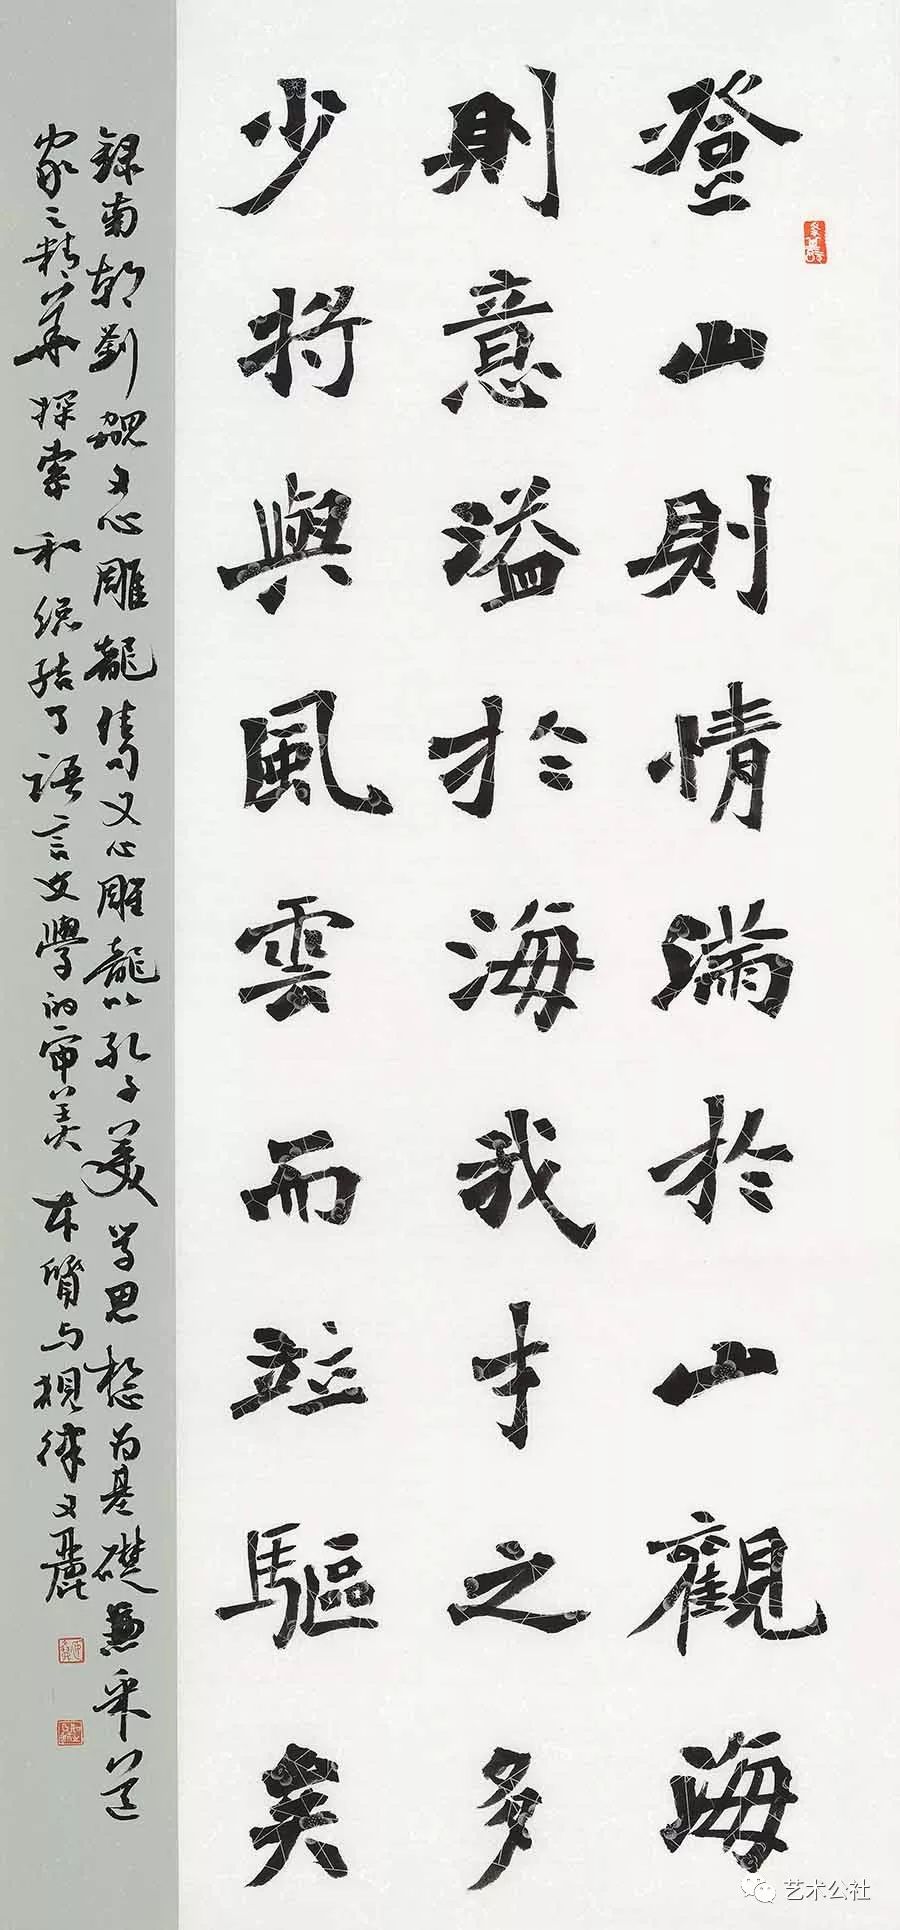 登山則情滿於山觀海
則意溢於海我才之多
少將與風雲而竝驅矣
録南朝劉勰文心雕龍佳句文心雕龍以孔子美学思想为基礎兼采道
家之精華探索和總结了語言文學的审美本質与規律文麗
艺术公社